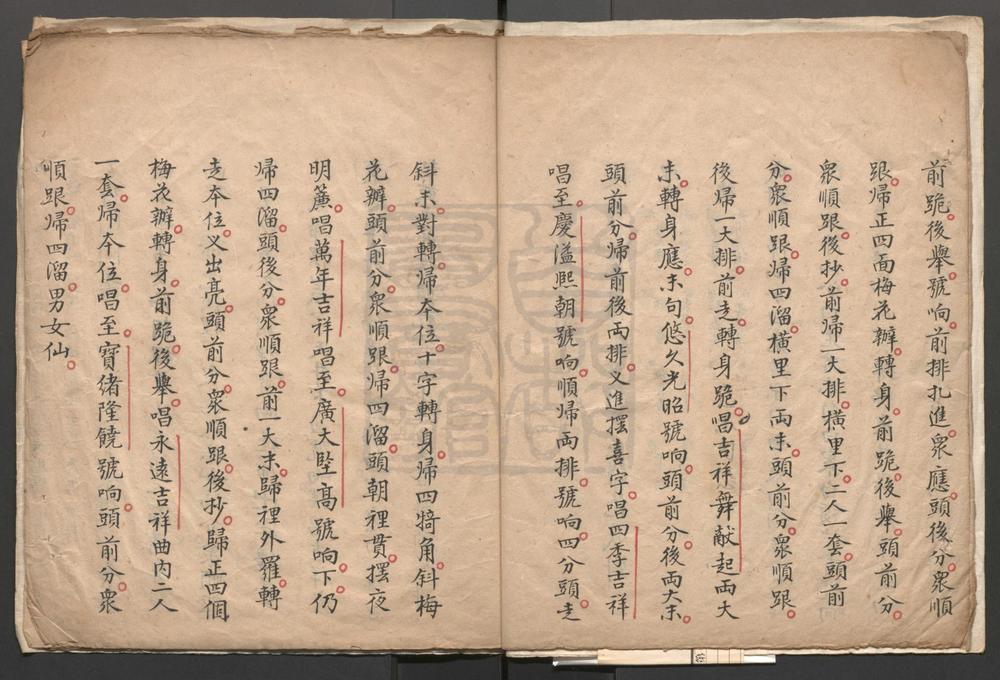 前跪後舉號响前排扎進衆應頭後分衆順
跟歸正四面梅花辦轉身前跪後舉頭前分
衆順跟後抄前歸一大排橫里下二人一套頭前
分衆順跟歸四溜橫里下两末頭前分衆順跟
後歸一大排前走轉身跪唱吉祥舞献起两大
末轉身應末句悠久光昭號响頭前分後两大末
頭前分歸前後两排又進擺喜字唱四季吉祥
唱至慶溢熙朝號响順歸两排號响四分頭走
斜末對轉歸本位十字轉身歸四犄角斜梅
花辦頭前分衆順跟歸四溜頭朝裡貫擺夜
明簾唱萬年吉祥唱至廣大堅高號响下仍
歸四溜頭後分衆順跟前一大末歸裡外羅轉
走本位又出亮頭前分衆順跟後抄歸正四個
梅花辦轉身前跪後舉唱永遠吉祥曲内二人
一套歸本位唱至寳緒隆饒號响頭前分衆
順跟歸四溜男女仙